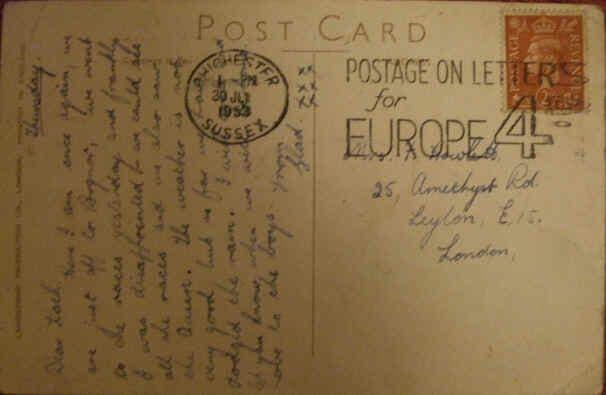 POST CARD
CHICHESTER
30 JLY
1953
SUSSEX
POSTAGE ON LETTERS
for
EUROPE 4D
POSTAGE
REVENUE
Mrs. A
25, Amethyst Rd.
Leyton, E. 15.
London,
Thursday.
Dear Kath, Here I am once again, we
are just off to Bognor, we went
to the races yesterday and frankly
I was disappointed & we could see
all the races and we also saw
the Queen. The weather is not
very good but so far we have
dodged the rain. I will
let you know when we
to the boys. from
Glad.
xx
xx
xx